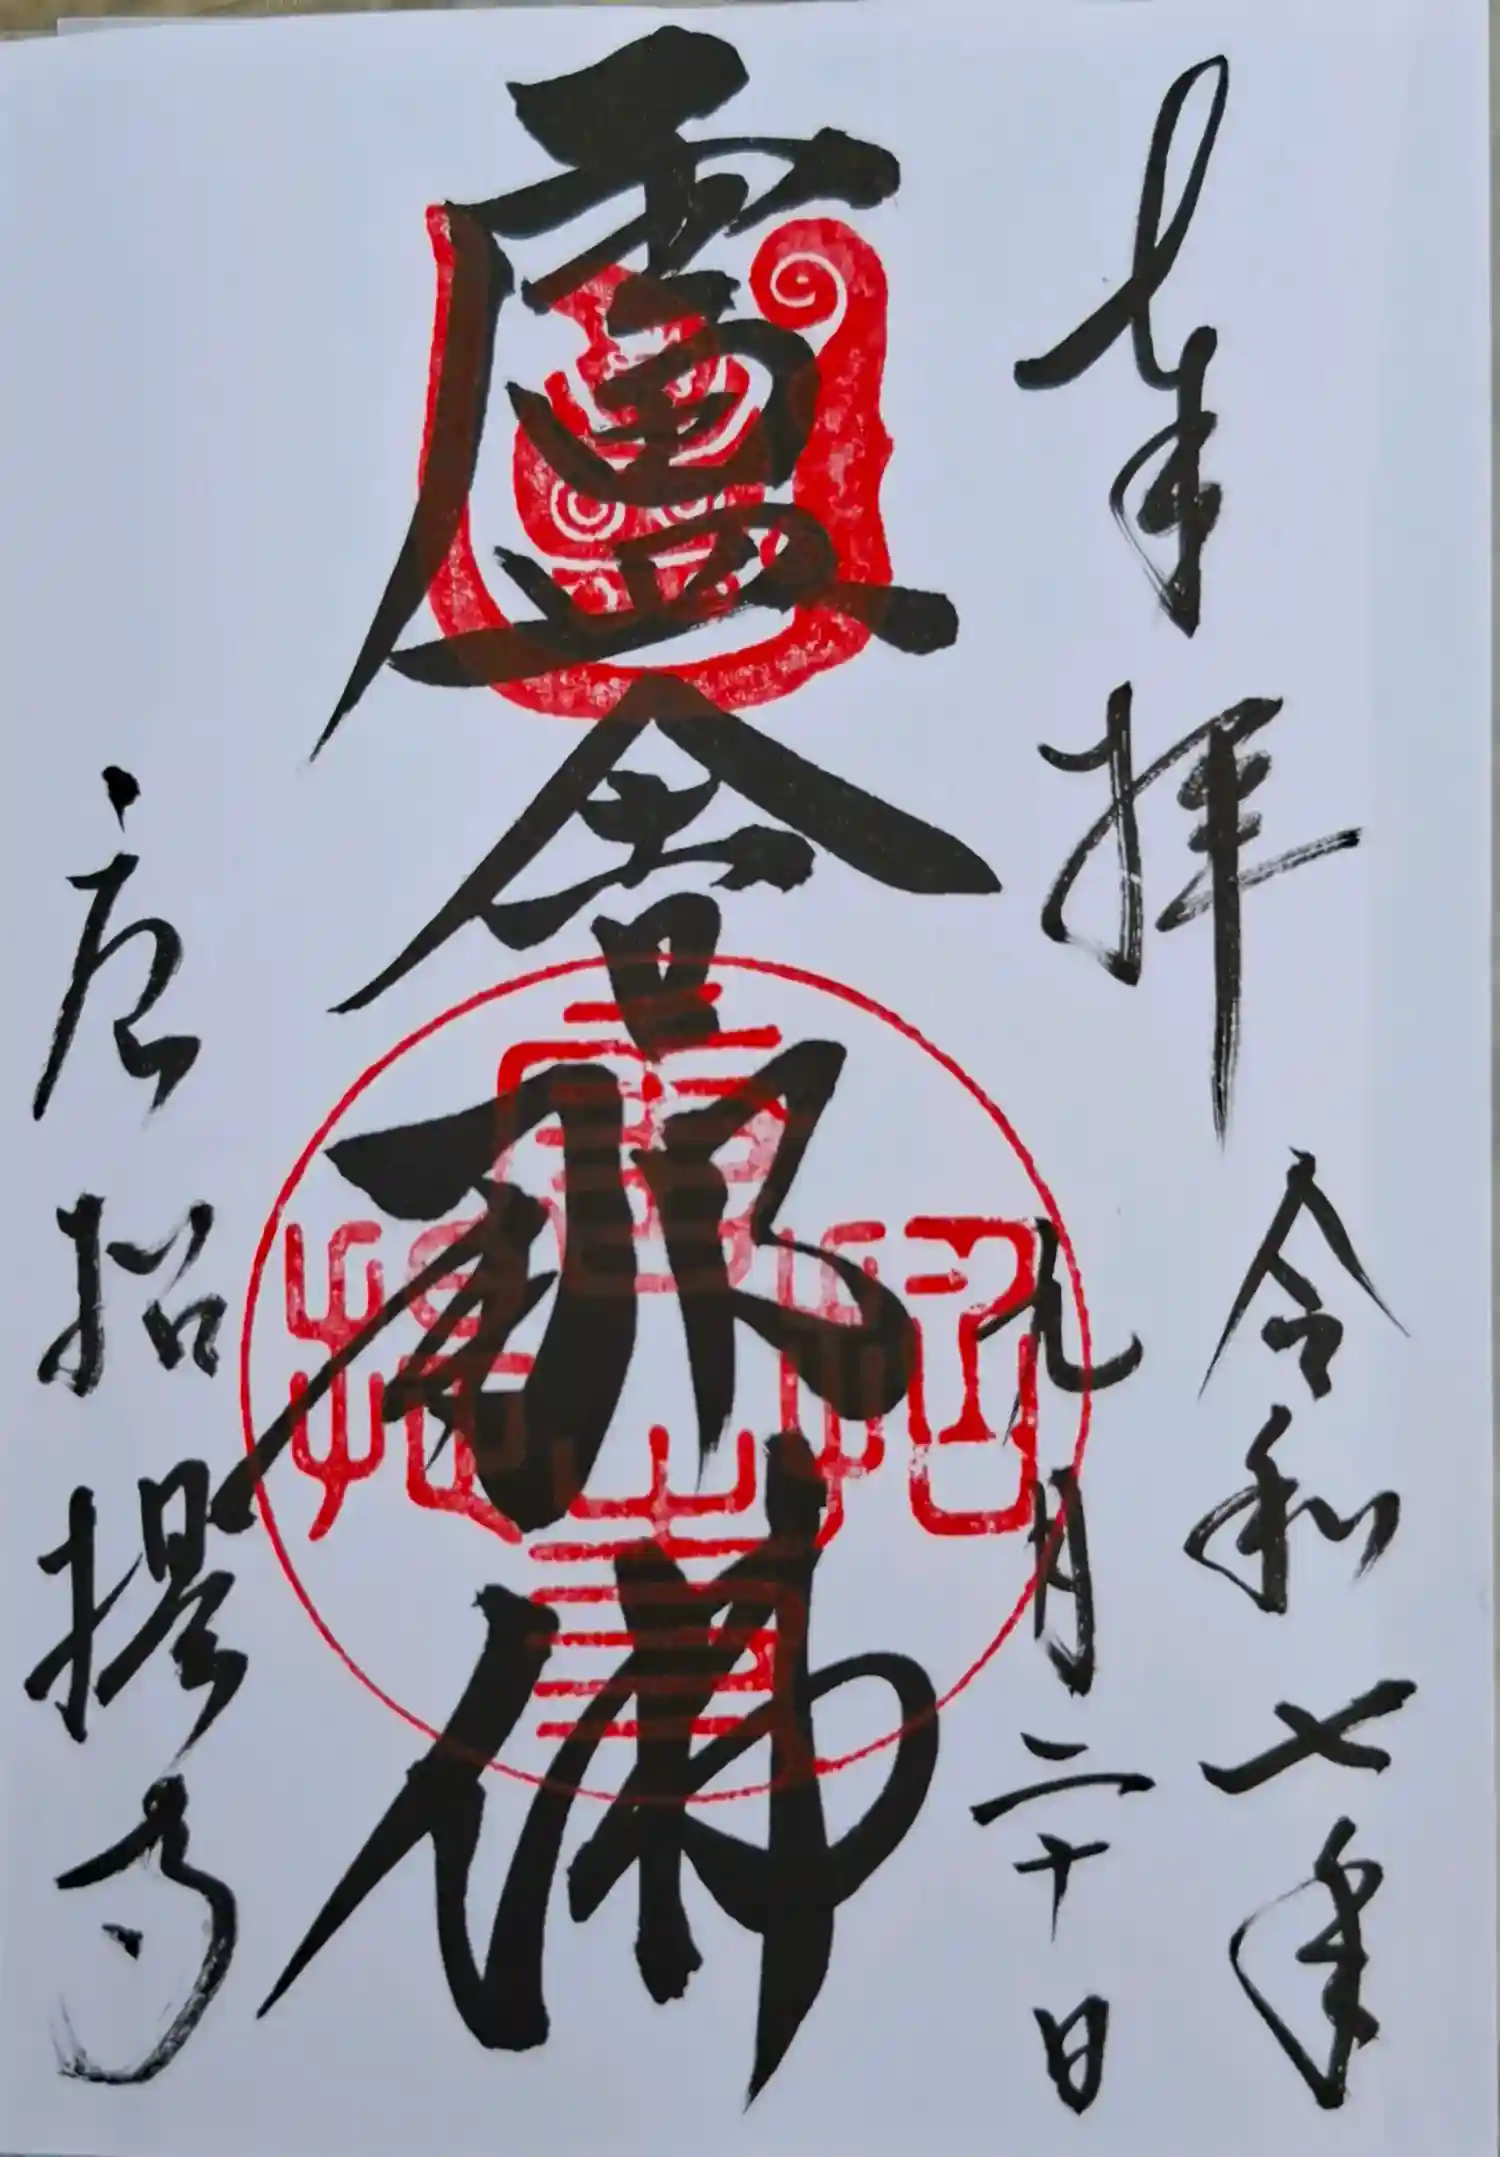 奉拝
令和七年
九月二十日
盧舎那佛
唐招提寺